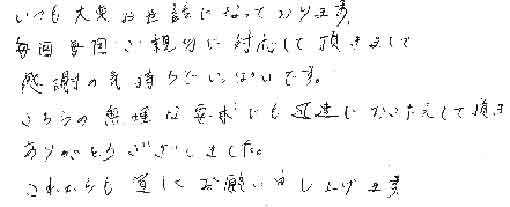 いつも大変お世話になっております。
毎回毎回ご親切に対応して頂きまして
感謝の気持ちでいっぱいです。
こちらの無理な要求にも迅速にかたえして頂き
ありがとうございました。
これからも宜しくお願い申し上げます